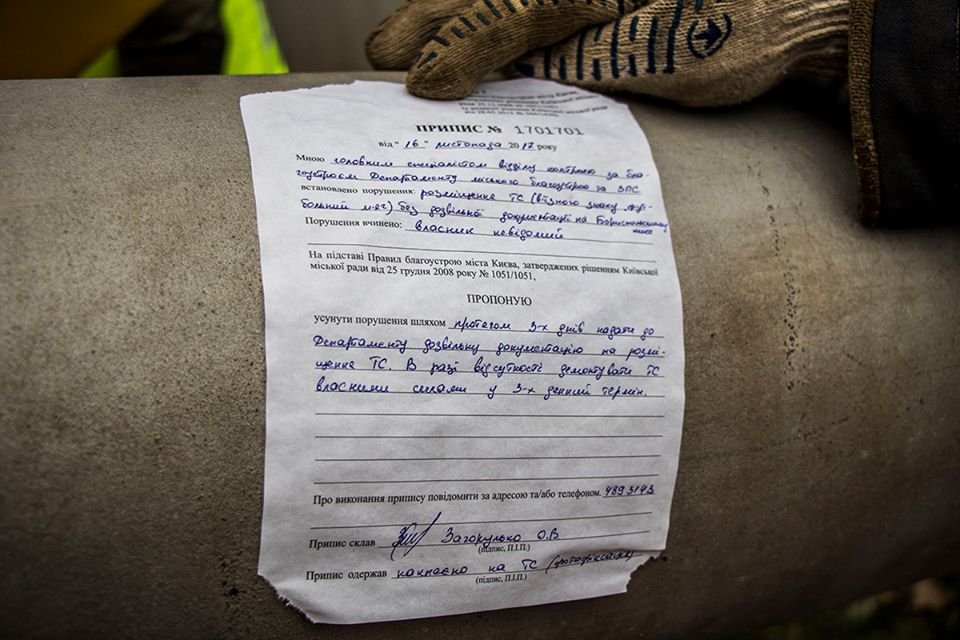 благоустрою міста Києва
ПРИПИС № 1701701
від "16" листопада 2017 року
Мною головним спеціалістом відділу контролю за бла-
гоустроєм Департаменту міського благоустрою та ЗПС
встановлено порушення: розміщення ТС (візного знаку фут-
больний мяч) без дозвільної документації на Бориспольському
шосе
Порушення вчинено: власник невідомий
На підставі Правил благоустрою міста Києва, затверджених рішенням Київської
міської ради від 25 грудня 2008 року № 1051/1051,
ПРОПОНУЮ
усунути порушення шляхом протягом 3-х днів надати до
Департаменту дозвільну документацію на розмі-
щення ТС. В разі відсутності демонтувати ТС
власними силами у 3-х денний термін.
Про виконання припису повідомити за адресою та/або телефоном. 4893143
Припис склав Загокулько О.В
(підпис, П.І.П.)
Припис одержав наклеєно на ТС (фотофіксація)
(підпис, П.І.П.)